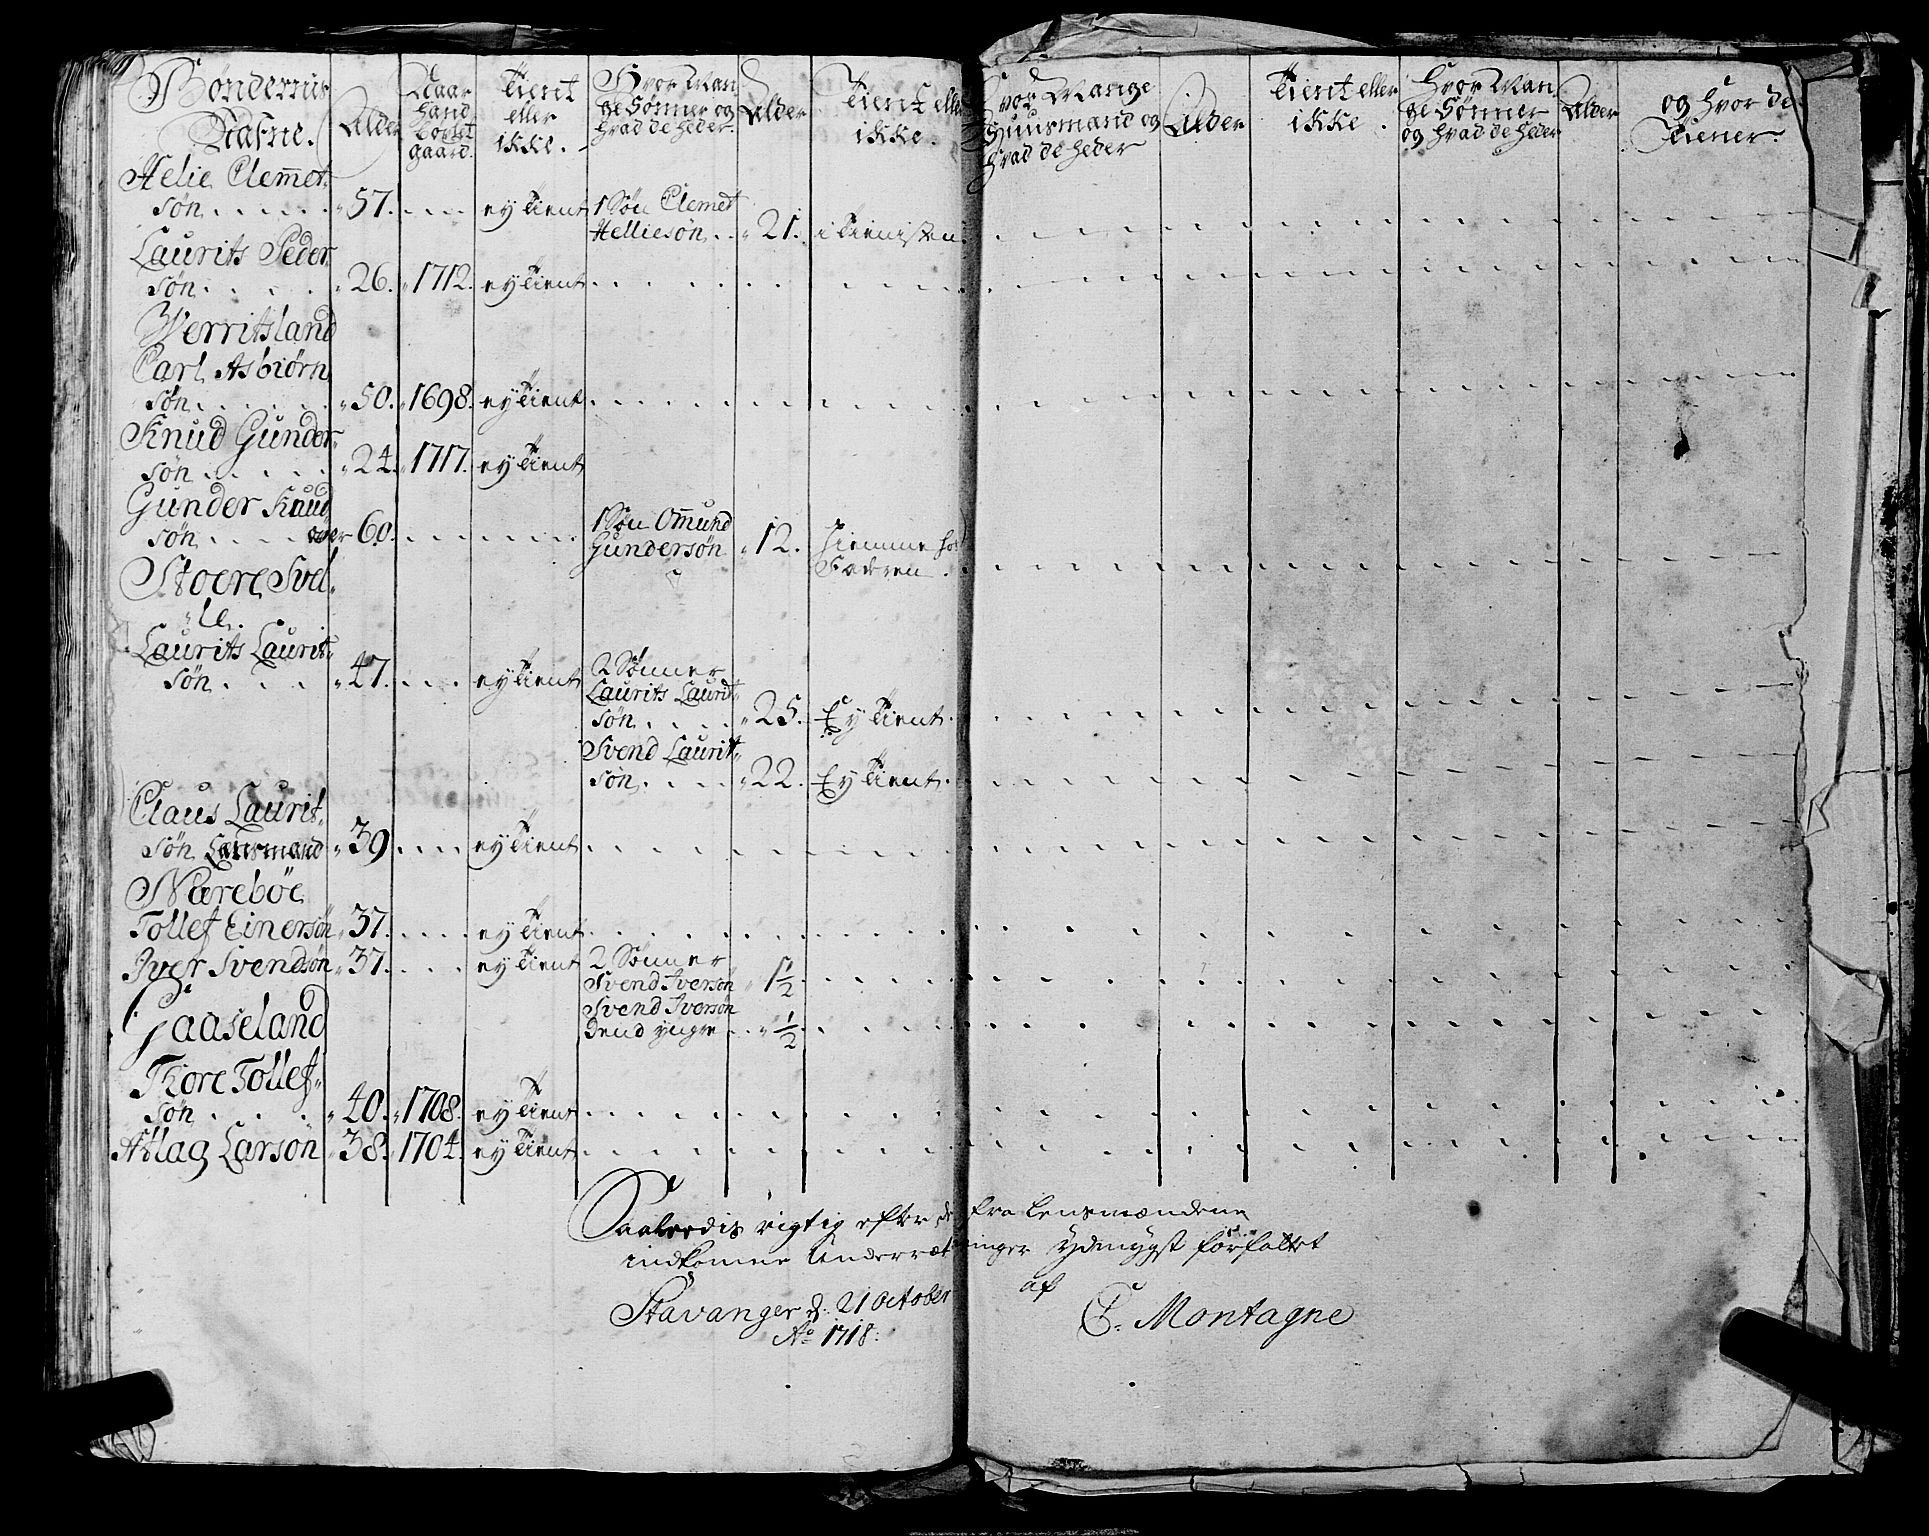 Bøndernis Nafne. Alder Naar hand boxlet gaard. Tient eller ikke. Hvor Mange Sønner og hvad de heder. Alder Tient eller ikke. Hvor Mange Huusmand og hvad de heder Alder Tient eller ikke. Hvor Mange Sønner og hvad de heder Alder og hvor de Tiener.
Helie Clemet-
søn . . . . . 57. . . . ey tient 1 Søn Clemet
Helliesøn . . 21. i tienisten
Laurits Peder-
søn . . . . 26. 1712. ey tient
Werritsland
Carl Asbiørn
søn . . . . . 50. 1698. ey tient
Knud Gunder-
søn . . . . . 24. 1717. ey tient
Gunder Knud
søn . . . . over 60. . . . 1 Søn Omund
Gundersøn 12. hiemme hos
Faderen.
Stoere Svel-
le.
Laurits Laurit-
søn . . . 47. . . . ey tient 2 Sønner
Laurits Laurit-
søn . . . . 25. Ey tient.
Svend Laurit-
søn . . . . 22. Ey tient.
Claus Laurit-
søn Lensmand 39 . . . . ey tient
Nærebøe
Tollef Einersøn 37. . . . . ey tient
Iver Svendsøn 37. . . . ey tient 2 Sønner
Svend Iversøn 1½
Svend Iversøn
dend yngre . . ½
Gaaseland
Thore Tollef-
søn . . . . 40. 1708. ey tient
Aslag Larsøn 38. 1704. ey tient
Saaledis rigtig efter de fra Lensmændene
indkomne Underrætninger ydmygst forfattet
af
Stavanger d: 21 October
Ao 1718.
C. Montagne